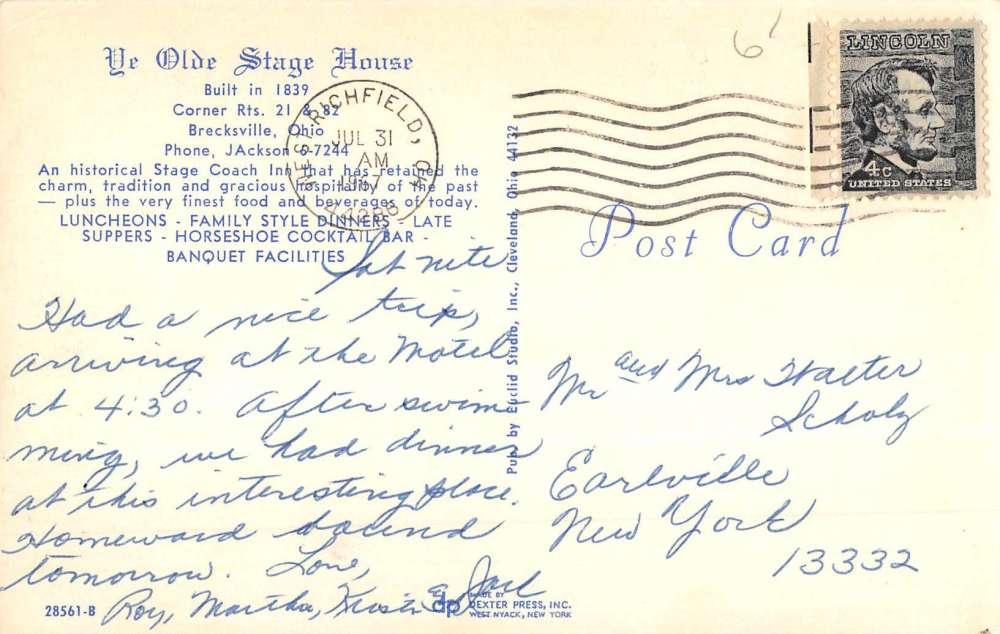 Ye Olde Stage House
Built in 1839
Corner Rts. 21 & 82
Brecksville, Ohio
Phone, JAckson 6-7244
An historical Stage Coach Inn that has retained the
charm, tradition and gracious hospitality of the past
— plus the very finest food and beverages of today.
LUNCHEONS - FAMILY STYLE DINNERS - LATE
SUPPERS - HORSESHOE COCKTAIL BAR -
BANQUET FACILITIES
Sat nite
Had a nice trip,
arriving at the Motel
at 4:30. After swim-
ming, we had dinner
at this interesting place.
Homeward bound
tomorrow. Love,
Roy, Martha, &
28561-B
WEST RICHFIELD, OH
JUL 31
AM
1967
44286
Pub. by Euclid Studio, Inc., Cleveland, Ohio 44132
LINCOLN
4c
UNITED STATES
6
Post Card
Mr and Mrs Walter
Scholz
Earlville
New York
13332
dp
MADE BY
DEXTER PRESS, INC.
WEST NYACK, NEW YORK